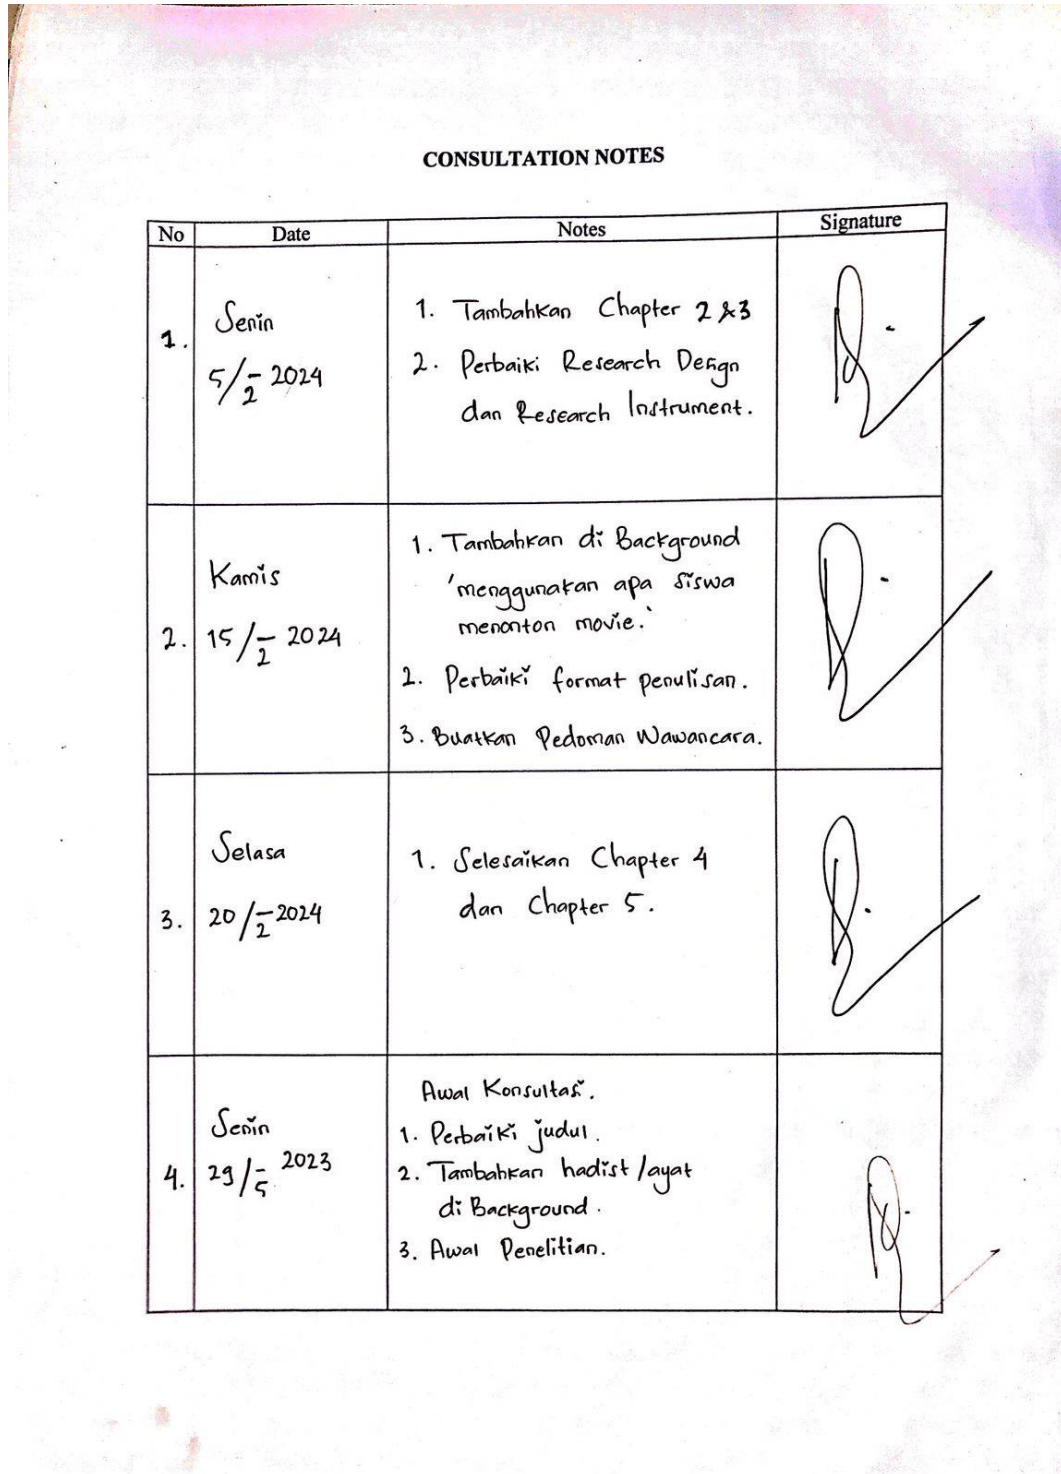 CONSULTATION NOTES
No Date Notes Signature
1. Senin 5/2-2024
1. Tambahkan Chapter 2 & 3
2. Perbaiki Research Design
dan Research Instrument.
2. Kamis 15/2-2024
1. Tambahkan di Background
'menggunakan apa siswa
menonton movie.'
2. Perbaiki format penulisan.
3. Buatkan Pedoman Wawancara.
3. Selasa 20/2-2024
1. Selesaikan Chapter 4
dan Chapter 5.
4. Senin 29/5-2023
Awal Konsultasi.
1. Perbaiki judul.
2. Tambahkan hadist/ayat
di Background.
3. Awal Penelitian.